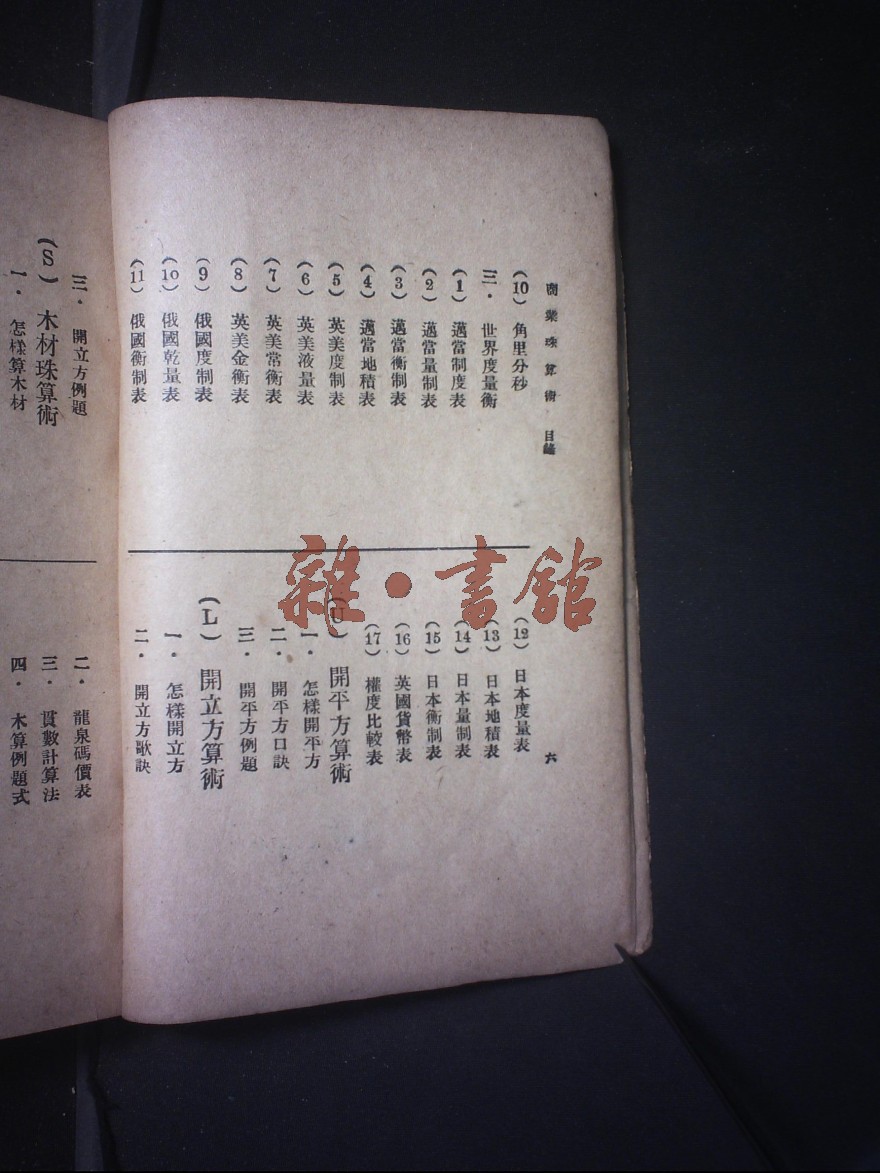 商業珠算術 目錄
(10) 角里分秒
三・ 世界度量衡
(1) 邁當制度表
(2) 邁當量制表
(3) 邁當衡制表
(4) 邁當地積表
(5) 英美度制表
(6) 英美液量表
(7) 英美常衡表
(8) 英美金衡表
(9) 俄國度制表
(10) 俄國乾量表
(11) 俄國衡制表
(12) 日本度量表
(13) 日本地積表
(14) 日本量制表
(15) 日本衡制表
(16) 英國貨幣表
(17) 權度比較表
(U) 開平方算術
一・ 怎樣開平方
二・ 開平方口訣
三・ 開平方例題
(L) 開立方算術
一・ 怎樣開立方
二・ 開立方歌訣
六
三・ 開立方例題
(S) 木材珠算術
一・ 怎樣算木材
二・ 龍泉碼價表
三・ 貫數計算法
四・ 木算例題式
雜・書館